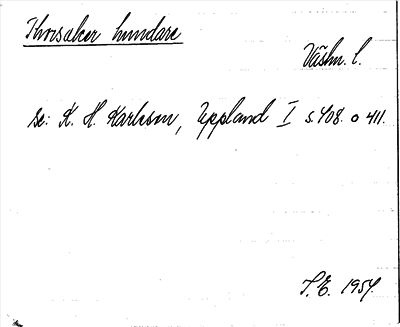 Thorsaker hundare
Väshn. l.
se: K. H. Karlsson, Uppland I s. 408. o 411.
T. E. 1957.